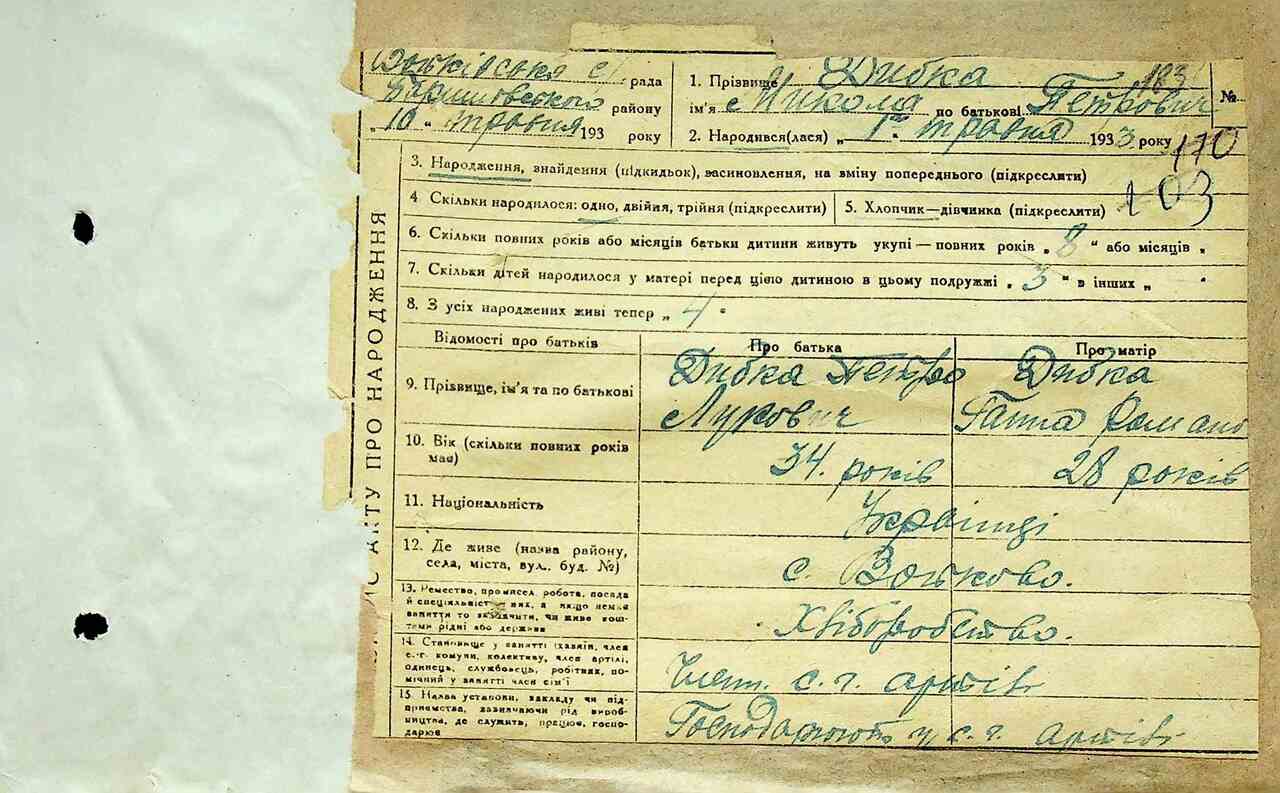 рада
району
„10“ травня 193 року
1. Прізвище Дибка
ім'я Микола по батькові Петрович
№
2. Народився(лася) „1“ травня 1933 року
170
103
ПРО НАРОДЖЕННЯ
3. Народження, знайдення (підкидьок), васиновлення, на зміну попереднього (підкреслити)
4 Скільки народилося: одно, двійня, трійня (підкреслити)
5. Хлопчик—дівчинка (підкреслити)
6. Скільки повних років або місяців батьки дитини живуть укупі — повних років „8“ або місяців „
7. Скільки дітей народилося у матері перед цією дитиною в цьому подружжі „3“ в інших „ “
8. З усіх народжених живі тепер „4“
Відомості про батьків
Про батька
Про матір
9. Прізвище, ім'я та по батькові
Дибка Петро
Лукович
Дибка
Ганна Романо
10. Вік (скільки повних років
має)
34. років
28 років
11. Національність
Українці
12. Де живе (назва району,
села, міста, вул., буд. №)
с. Вовково.
13. Ремество, промисел, робота, посада
й спеціяльність в них, а якщо немає
заняття то зазначити, чи живе кош-
тами рідні або держави
Хліборобство.
14. Становище у занятті (хазяїн, член
с.-г. комуни, колективу, член артілі,
одинець, службовець, робітник, по-
мічний у занятті член сім'ї
Члени с. г. артілі
15. Назва установи, закладу чи під-
приємства, зазначаючи рід вироб-
ництва, де служить, працює, госпо-
дарює
Господарюють у с. г. артілі